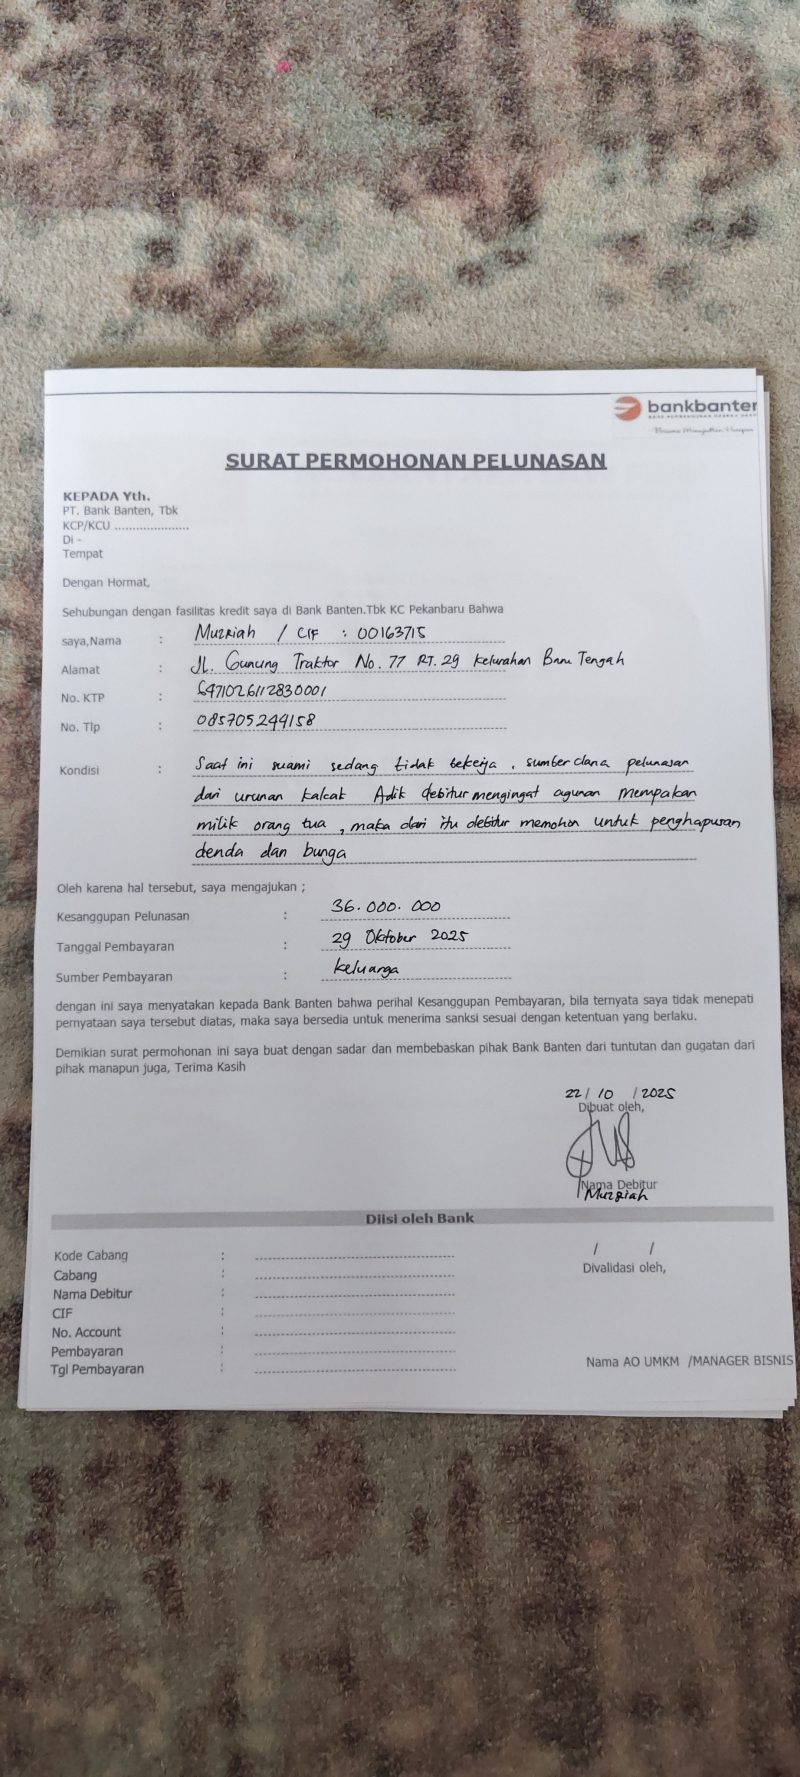 bankbanten
SURAT PERMOHONAN PELUNASAN
KEPADA Yth.
PT. Bank Banten, Tbk
KCP/KCU .....................
Di -
Tempat
Dengan Hormat,
Sehubungan dengan fasilitas kredit saya di Bank Banten.Tbk KC Pekanbaru Bahwa
saya,Nama : Muzriah / CIF : 00163715
Alamat : Jl. Gunung Traktor No. 77 RT. 29 Kelurahan Baru Tengah
No. KTP : 6471026112830001
No. Tlp : 085705249158
Kondisi : Saat ini suami sedang tidak bekerja, sumber dana pelunasan
dari urunan kakak Adik debitur mengingat agunan merupakan
milik orang tua, maka dari itu debitur memohon untuk penghapusan
denda dan bunga
Oleh karena hal tersebut, saya mengajukan ;
Kesanggupan Pelunasan : 36.000.000
Tanggal Pembayaran : 29 Oktober 2025
Sumber Pembayaran : keluarga
dengan ini saya menyatakan kepada Bank Banten bahwa perihal Kesanggupan Pembayaran, bila ternyata saya tidak menepati
pernyataan saya tersebut diatas, maka saya bersedia untuk menerima sanksi sesuai dengan ketentuan yang berlaku.
Demikian surat permohonan ini saya buat dengan sadar dan membebaskan pihak Bank Banten dari tuntutan dan gugatan dari
pihak manapun juga, Terima Kasih
22/ 10 / 2025
Dibuat oleh,
Nama Debitur
Muzriah
Diisi oleh Bank
Kode Cabang :
/ /
Cabang :
Divalidasi oleh,
Nama Debitur :
CIF :
No. Account :
Pembayaran :
Nama AO UMKM /MANAGER BISNIS
Tgl Pembayaran :